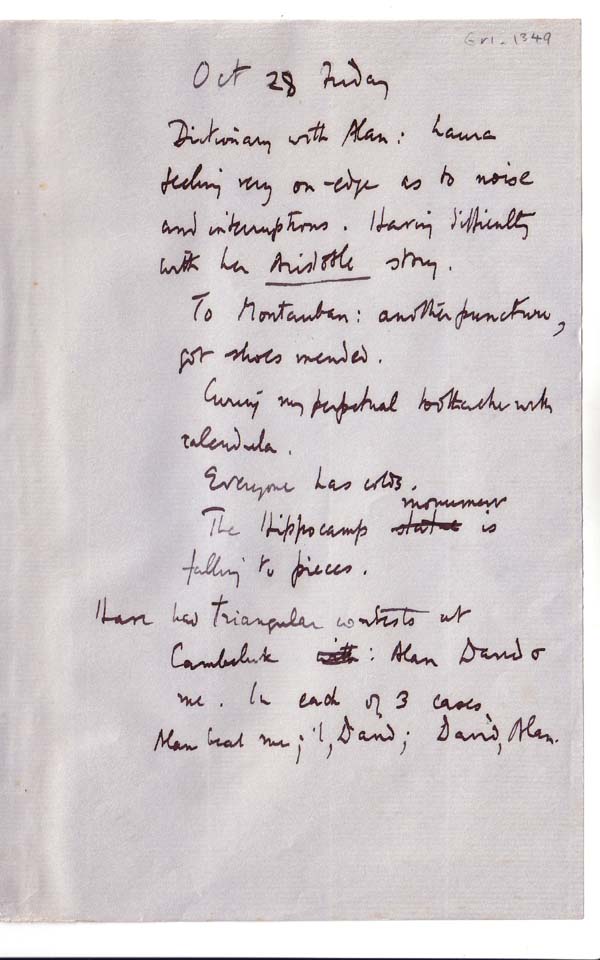 Gr1-1349
Oct 28 Friday
Dictionary with Alan: Laura
feeling very on-edge as to noise
and interruptions. Having difficulty
with her Aristotle story.
To Montauban: another puncture,
got shoes mended.
Curing my perpetual toothache with
calendula.
Everyone has colds.
monument
The Hippocamp statue is
falling to pieces.
Have had Triangular contests at
Cambeluk with: Alan David &
me. In each of 3 cases
Alan beat me; I, David; David, Alan.